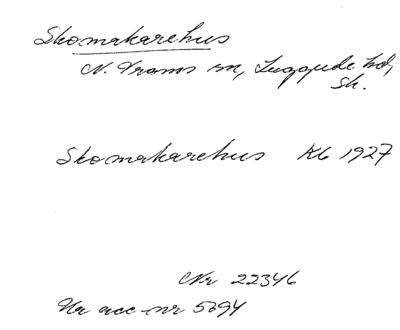 Skomakarehus
N. Vrams sn, Luggude hd,
Sk.
Skomakarehus Kb 1927
Nr 22346
Ur acc-nr 5694